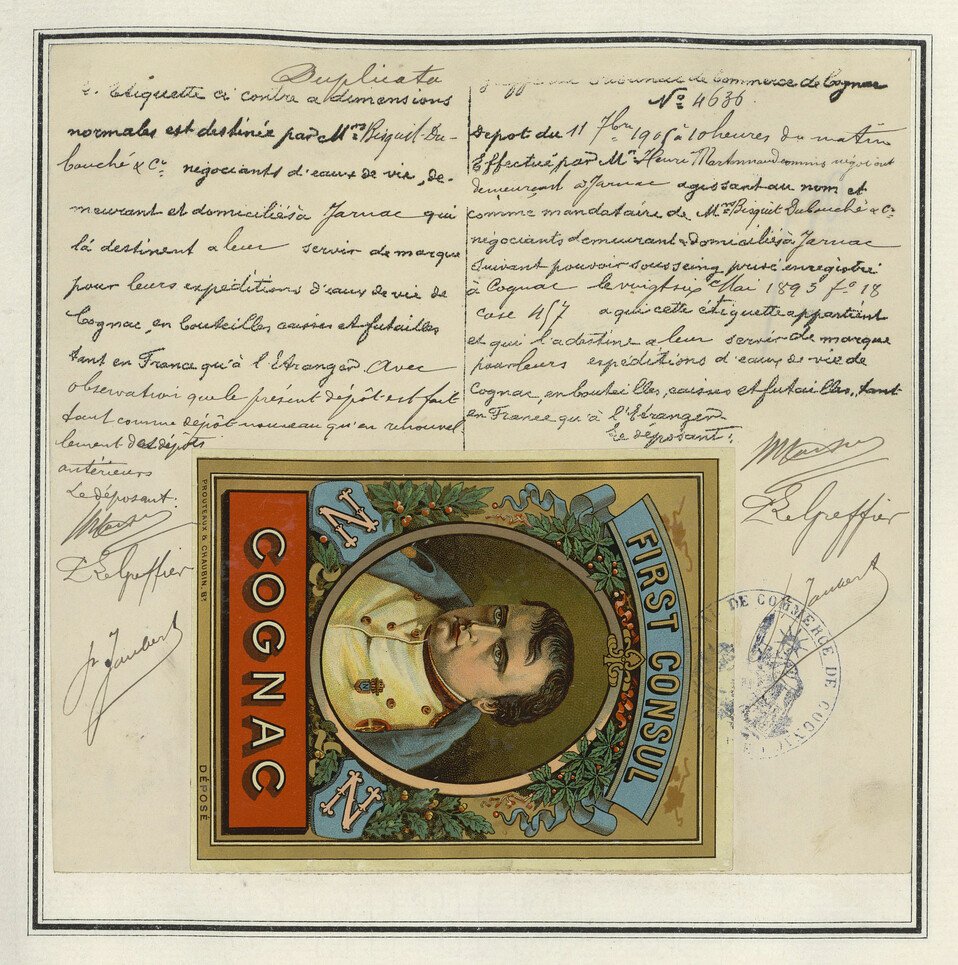 Duplicata
L'Etiquette ci contre a dimensions
normales est destinée par Mrs Bisquit Du-
bouché & Cie négociants d'eaux de vie, de-
meurant et domiciliés à Jarnac qui
la destinent a leur servir de marque
pour leurs expéditions d'eaux de vie de
Cognac, en bouteilles caisses et futailles
tant en France qu'à l'Etranger Avec
observation que le présent dépôt est fait
tant comme dépôt nouveau qu'en renouvel
lement des dépôts
antérieurs
Le déposant:
P. Le Greffier
Jaubert
Tribunal de Commerce de Cognac
No 4636.
Depot du 11 7bre 1905 à 10 heures du matin
Effectué par Mr Henri Martinnaud commis négociant
demeurant à Jarnac agissant au nom et
comme mandataire de Mrs Bisquit Dubouché & Cie
négociants demeurant & domiciliés à Jarnac
suivant pouvoir sous seing privé enregistré
à Cognac le vingt six Mai 1893 fo 18
case 457 a qui cette étiquette appartient
et qui l'a destine a leur servir de marque
pour leurs expéditions d'eaux de vie de
Cognac, en bouteilles, caisses et futailles, tant
en France qu'à l'Etranger
Le déposant:
P. Le Greffier
Jaubert
FIRST CONSUL
N
N
COGNAC
PROUTEAUX & CHAUBIN, Bt
DÉPOSÉ
DE COMMERCE DE COGNAC